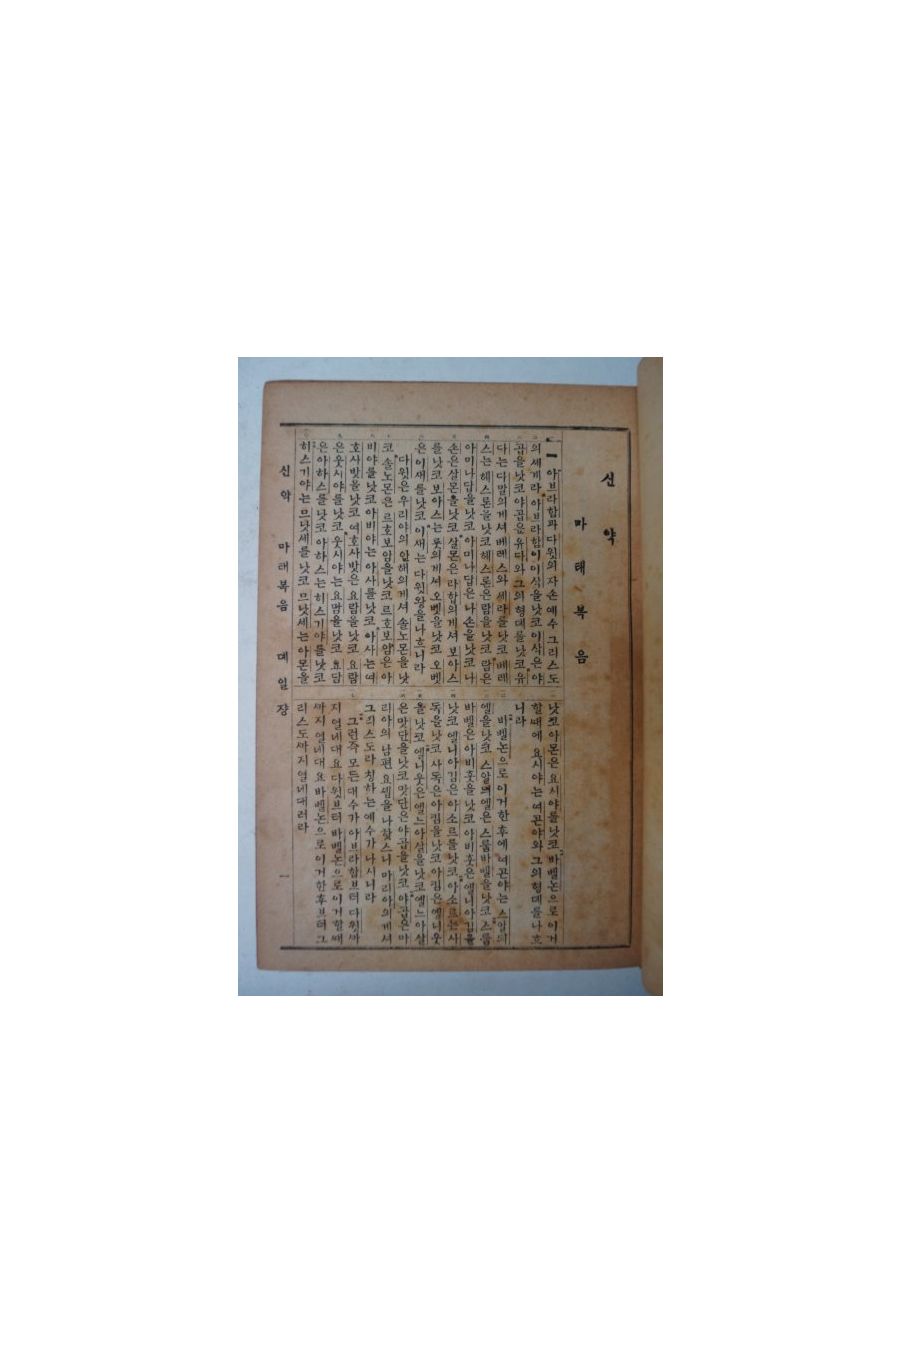 신약
마태복음
一 아브라함과 다윗의 자손 예수 그리스도
의 세계라 아브라함이 이삭을 낫코 이삭은 야
곱을 낫코 야곱은 유다와 그의 형뎨를 낫코 유
다는 다말의게셔 베레스와 세라를 낫코 베레
스는 헤스론을 낫코 헤스론은 람을 낫코 람은
아미나답을 낫코 아미나답은 나손을 낫코 나
손은 살몬을 낫코 살몬은 라합의게셔 보아스
를 낫코 보아스는 룻의게셔 오벳을 낫코 오벳
은 이새를 낫코 이새는 다윗왕을 나흐니라
다윗은 우리야의 안해의게셔 솔노몬을 낫
코 솔노몬은 르호보암을 낫코 르호보암은 아
비야를 낫코 아비야는 아사를 낫코 아사는 여
호사밧을 낫코 여호사밧은 요람을 낫코 요람
은 웃시야를 낫코 웃시야는 요담을 낫코 요담
은 아하스를 낫코 아하스는 히스기야를 낫코
히스기야는 므낫세를 낫코 므낫세는 아몬을
낫코 아몬은 요시야를 낫코 바벨논으로 이거
할 때에 요시야는 여고냐와 그의 형뎨를 나흐
니라
바벨논으로 이거한 후에 여고냐는 스알듸
엘을 낫코 스알듸엘은 스룹바벨을 낫코 스룹
바벨은 아비훗을 낫코 아비훗은 엘니아김을
낫코 엘니아김은 아소르를 낫코 아소르는 사
독을 낫코 사독은 아킴을 낫코 아킴은 엘니웃
을 낫코 엘니웃은 엘느아살을 낫코 엘느아살
은 맛단을 낫코 맛단은 야곱을 낫코 야곱은 마
리아의 남편 요셉을 나핫스니 마리아의게셔
그리스도라 칭하는 예수가 나시니라
그런즉 모든 대수가 아브라함브터 다윗까
지 열네대요 다윗브터 바벨논으로 이거할 때
까지 열네대요 바벨논으로 이거한 후브터 그
리스도까지 열네대러라
신약 마태복음 뎨일쟝 一